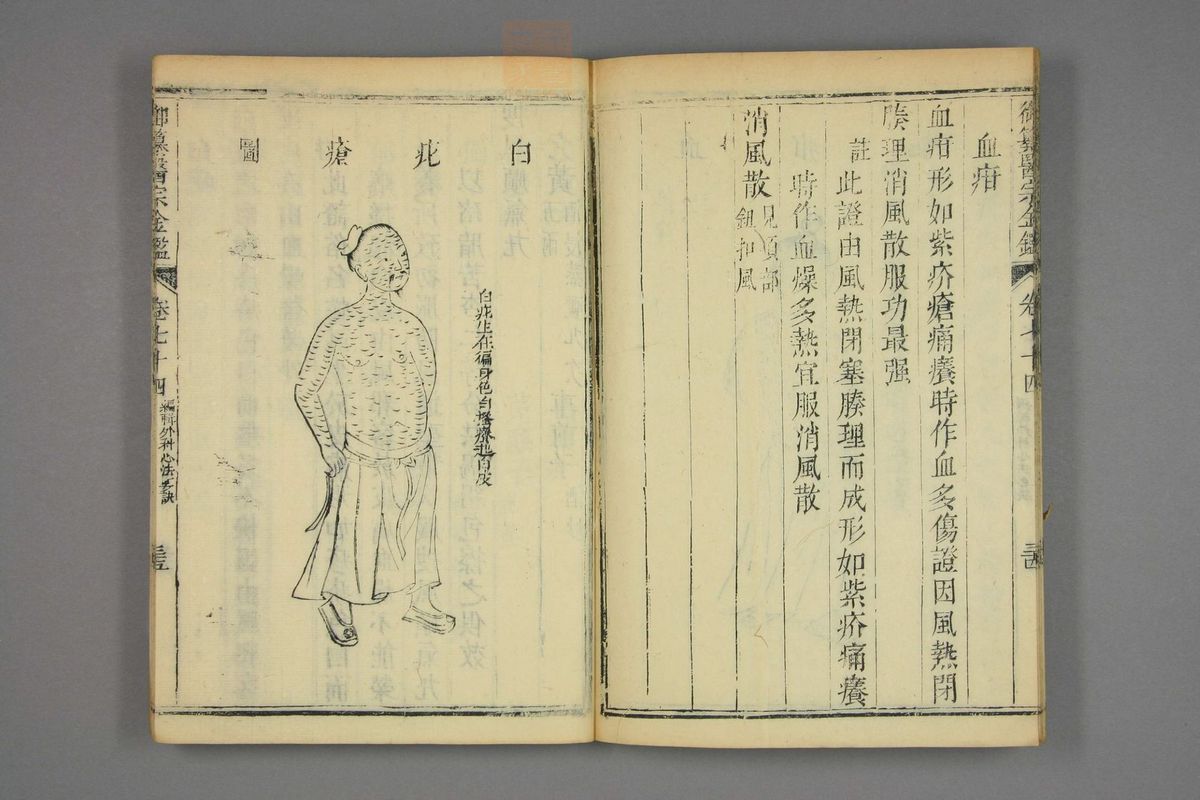 御纂醫宗金鑑 卷七十四
血疳
血疳形如紫疥瘡痛癢時作血多傷證因風熱閉
腠理消風散服功最强
註此證由風熱閉塞腠理而成形如紫疥痛癢
時作血燥多熱宜服消風散
消風散見項部鈕扣風
白疕瘡圖
白疕生在徧身色白
起白皮
御纂醫宗金鑑 卷七十四 編輯外科心法要訣